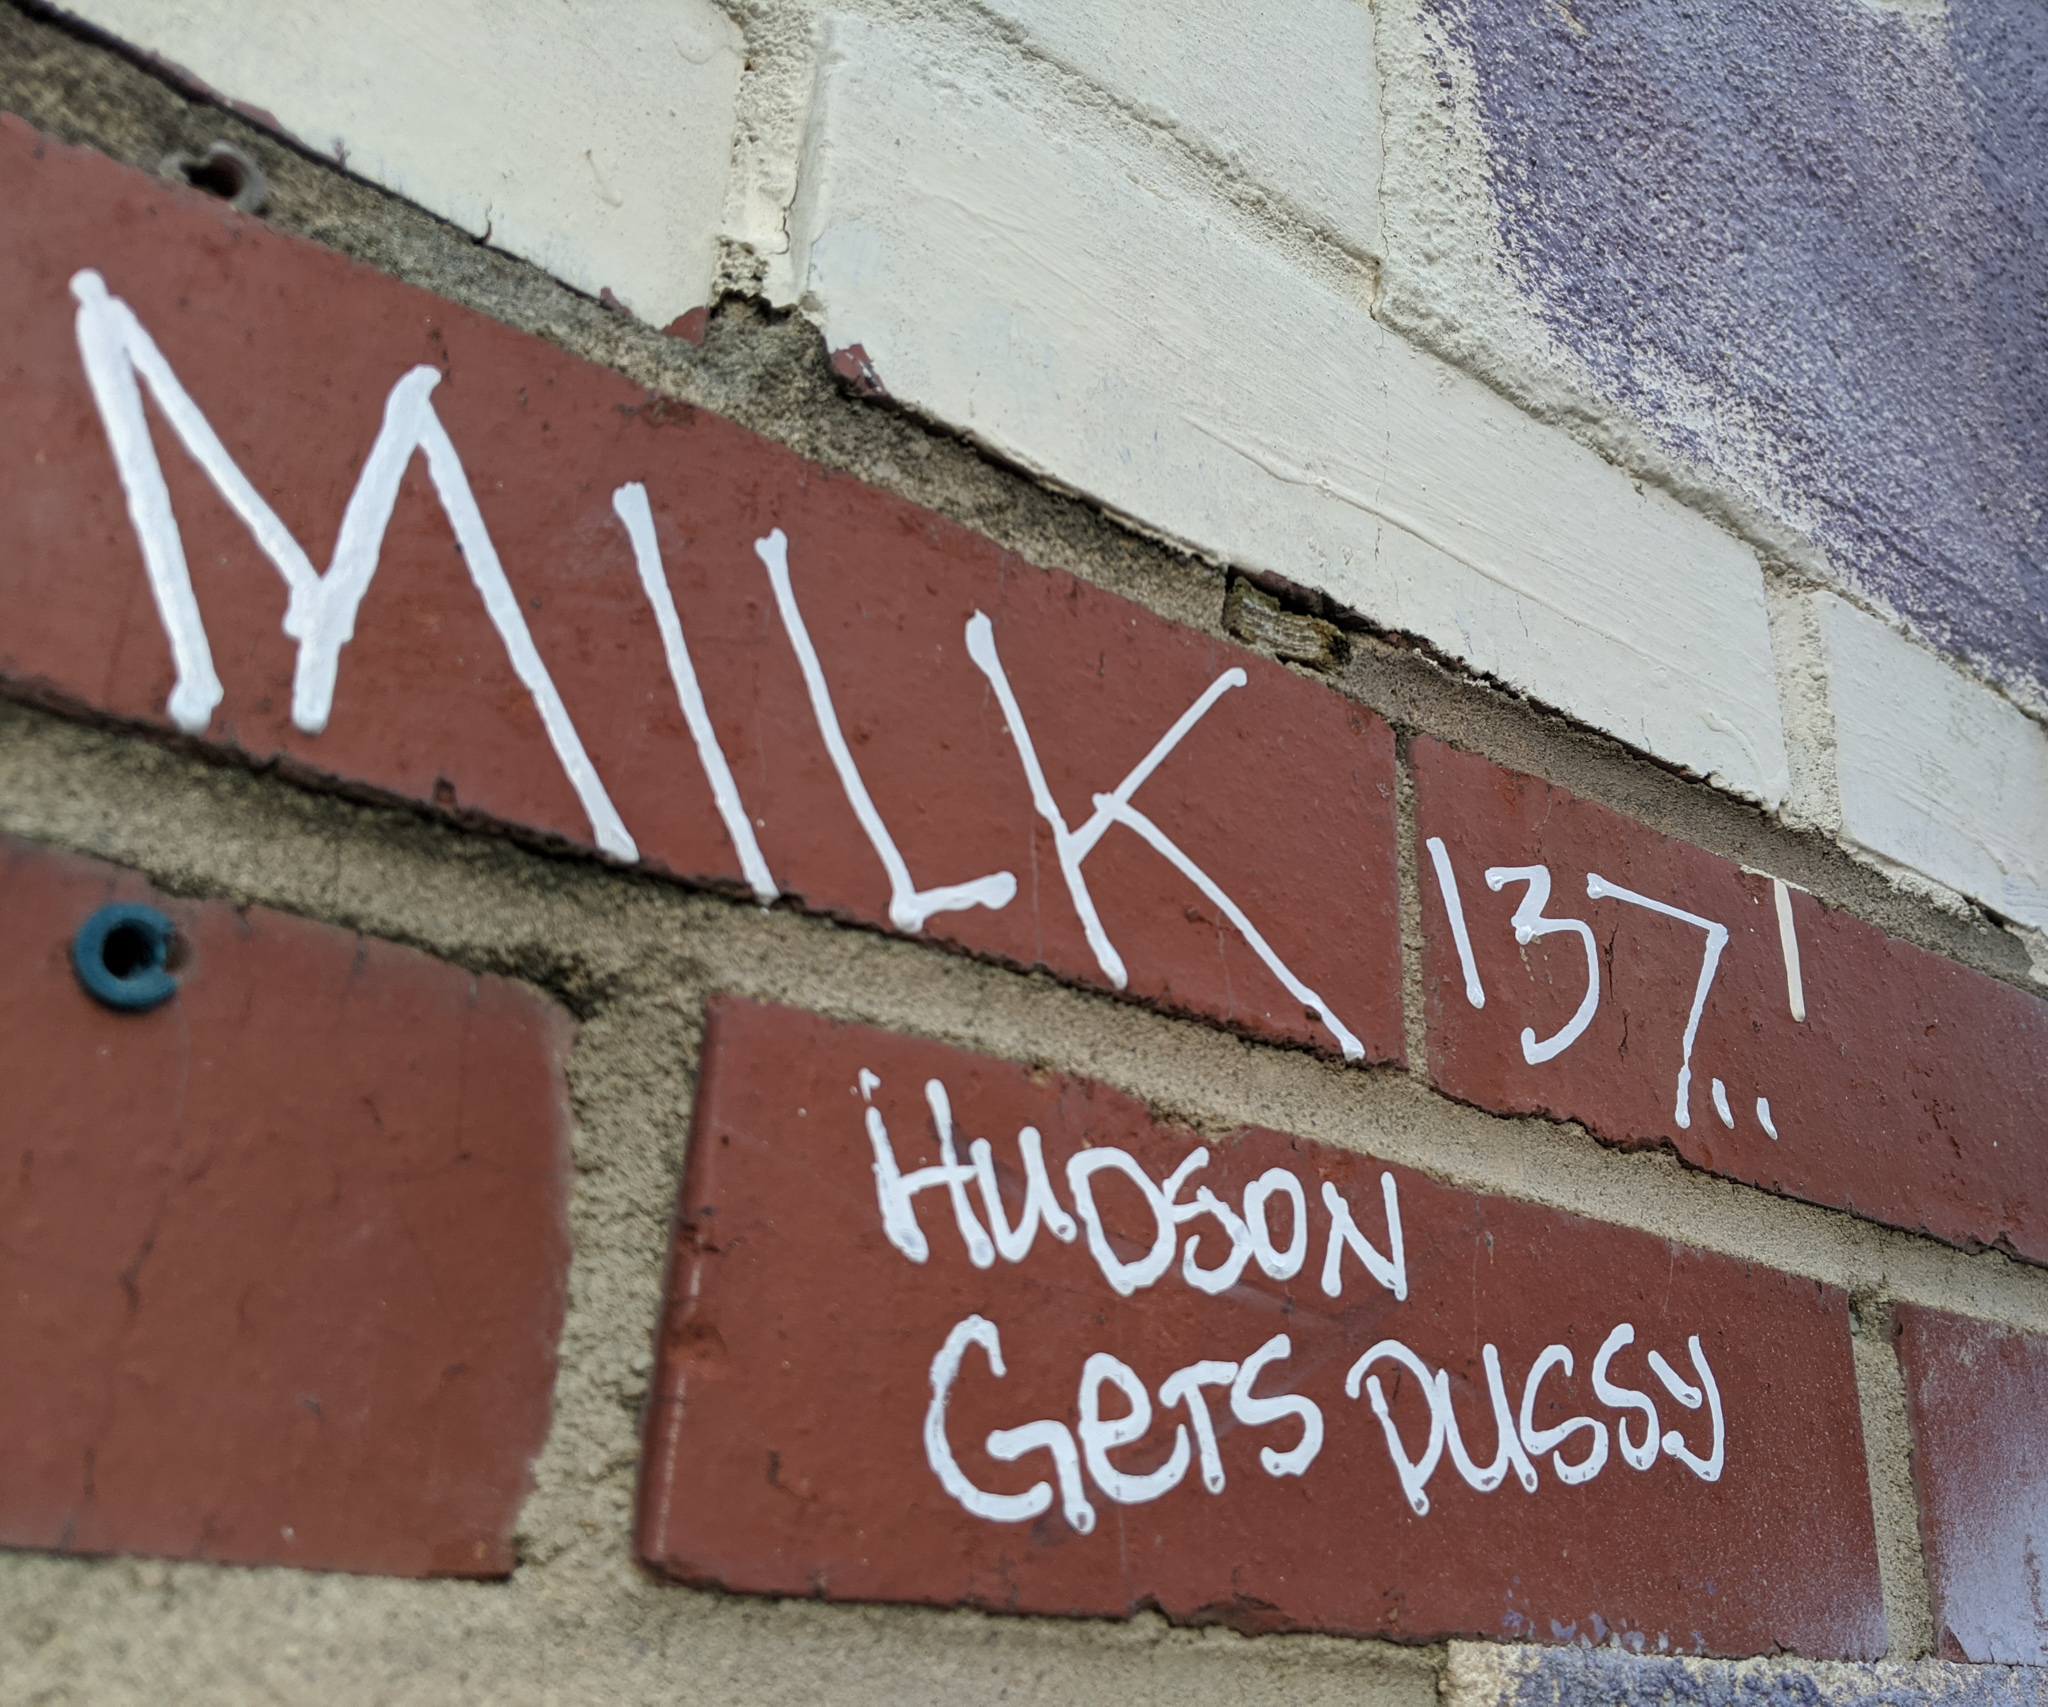 MILK 137...'
HUDSON
GeTS PUSSY